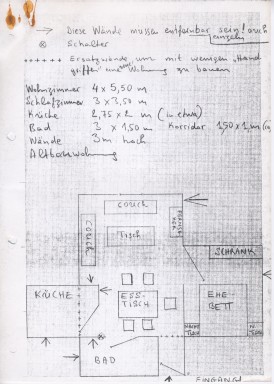 → Diese Wände müssen entfernbar sein! auch
einzeln
⊗ Schalter
+++++ Ersatzwände um mit wenigen "Hand-
griffen" eine Wohnung zu bauen
Wohnzimmer 4 x 5,50 m
Schlafzimmer 3 x 3,50 m
Küche 2,75 x 2 m (in etwa)
Bad 3 x 1,50 m Korridor 1,50 x 2 m
Wände 3m hoch
Altbauwohnung
COUCH
COUCH
TISCH
SCHRANK
KÜCHE
ESS-
TISCH
EHE-
BETT
NACHT
TISCH
N.
TISCH
BAD
EINGANG